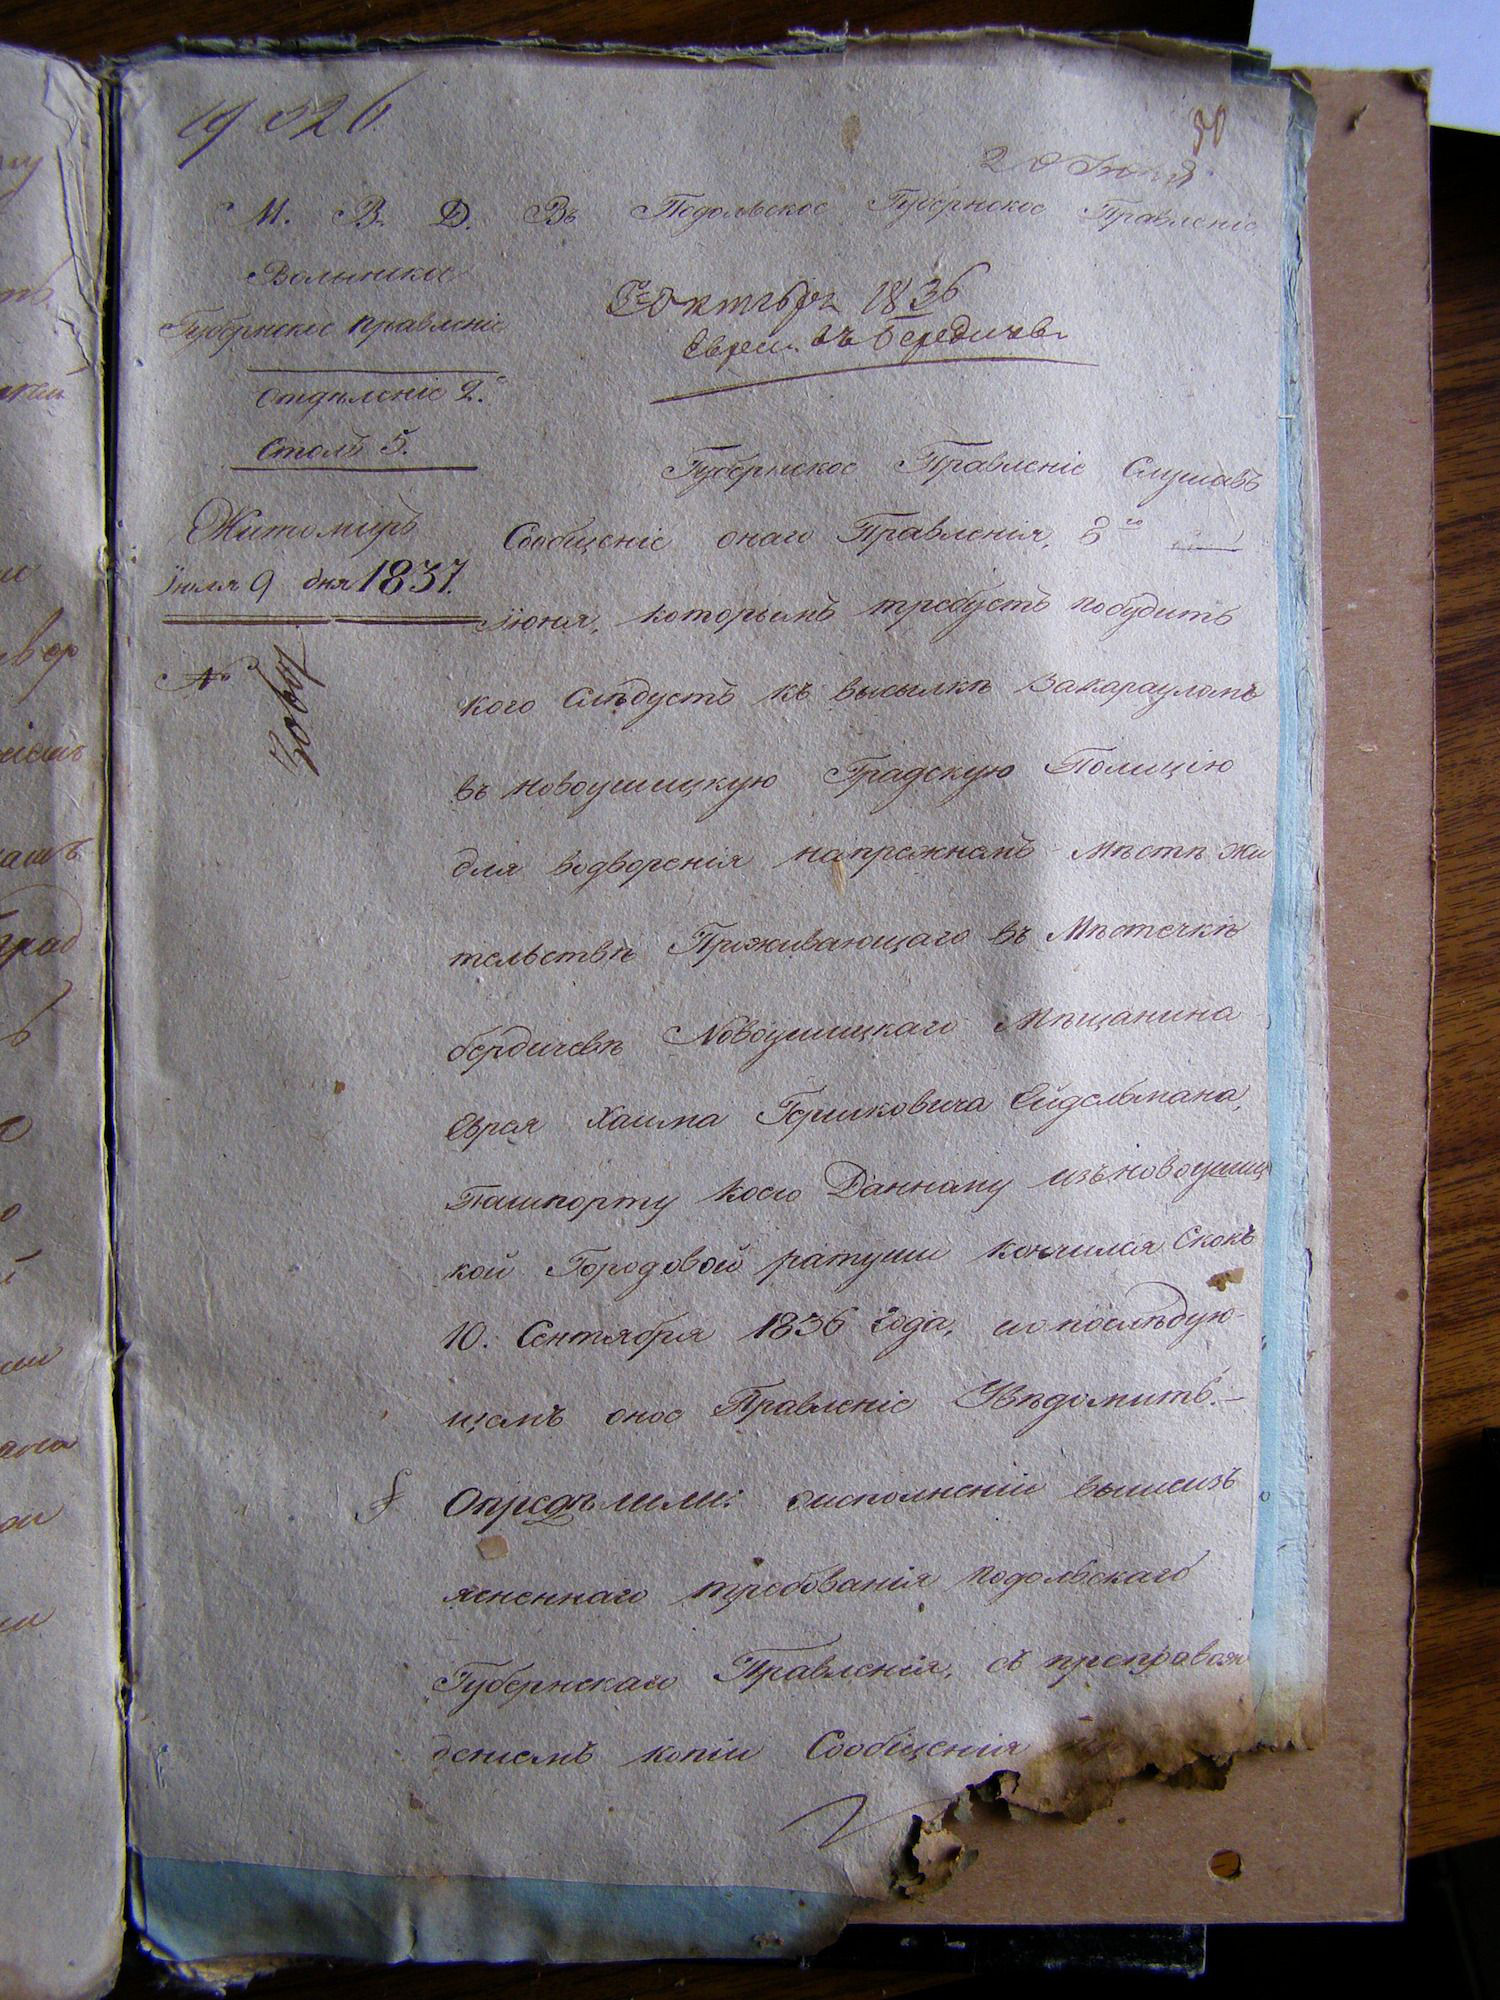 19 026
30
20 Июля
М. В. Д. Въ Подольское Губернское Правленіе
Волынское
Губернское правленіе
Отдѣленіе 2.
Столъ 5.
Октябрь 1836
Евреи въ Бердичевѣ
Губернское Правленіе Слушавъ
Житомиръ
Сообщеніе онаго Правленія, 8го
Іюля 9 дня 1837.
Іюня, которымъ требуетъ побудить
№
кого Слѣдуетъ къ высылкѣ закарауломъ
въ Новоушицкую Градскую Полицію
для водворенія напрежнемъ Мѣстѣ жи
тельствѣ Проживающаго въ Мѣстечкѣ
бердичевѣ Новоушицкаго Мѣщанина
Еврея Хаима Гершковича Ейдельмана,
Пашпорту коего Данному изъ новоушиц
кой Городовой ратуши кончился Срокъ
10. Сентября 1836 года, ио послѣдую-
щемъ оное Правленіе Увѣдомить.-
Опредѣлили: оисполненіи вышеизъ
ясненнаго требованія подольскаго
Губернскаго Правленія, съ препровож
деніемъ копіи Сообщенія